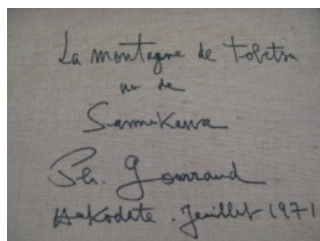 La montagne de Tobetsu
vu de
Sannikawa
Ph. Gourraud
Hakodate. Juillet 1971